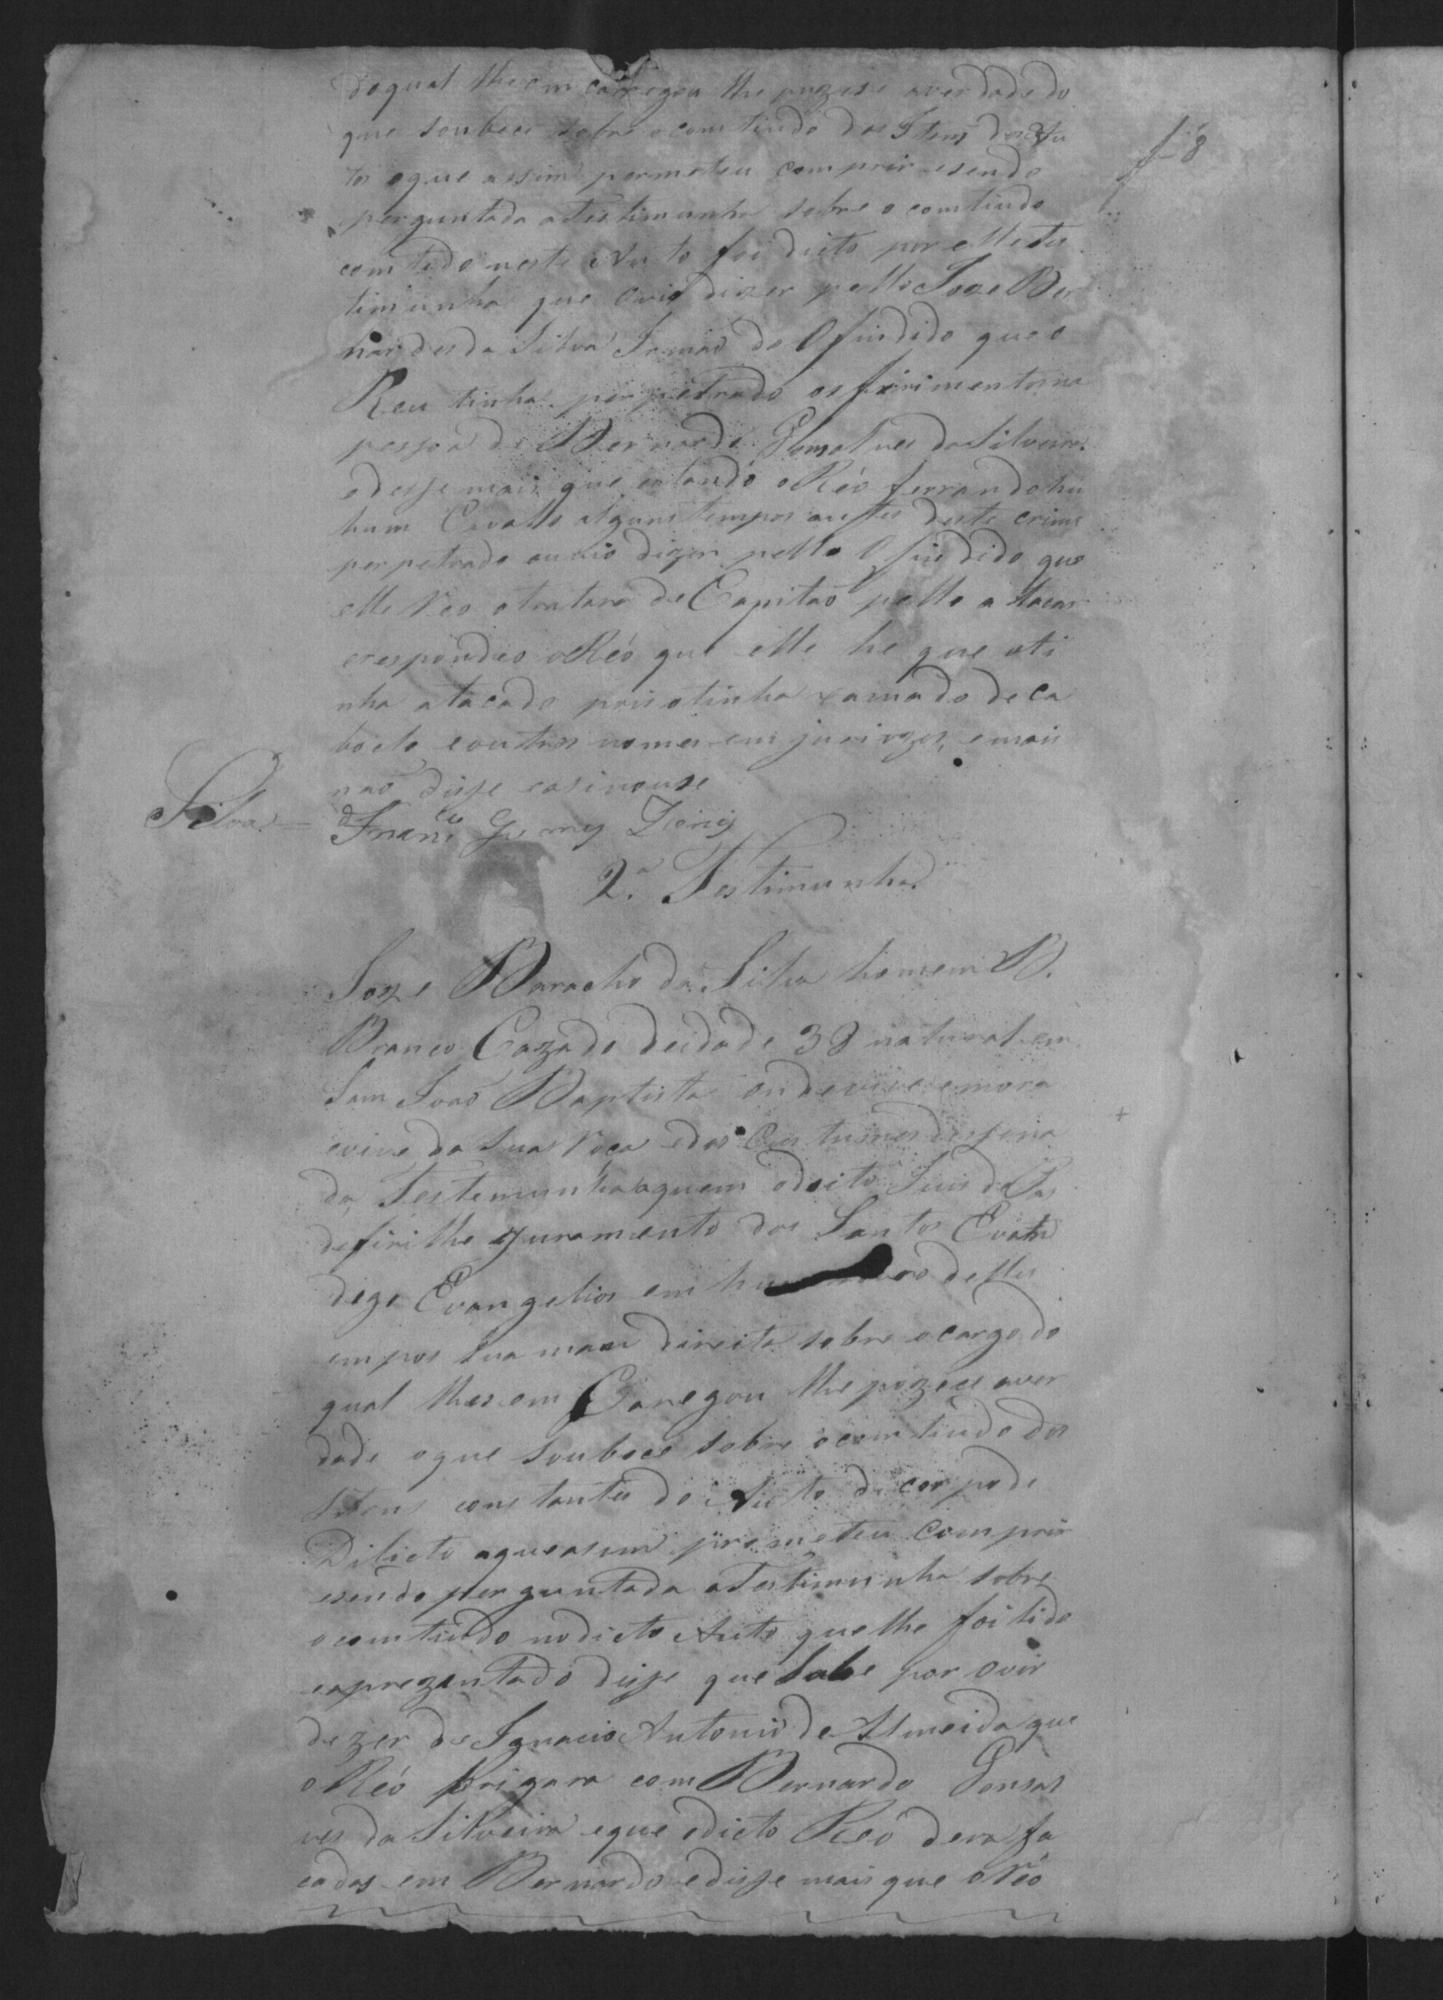 do qual lhe em carregou lhe puzese averdade do
que soubece sobre ocomtiudo dos Itens do Au
to oque asim permeteu comprir esendo
perguntada aTestimunha sobre o comtiudo
comtido neste Auto foi dicto por elle tes
timunha que ovio dizer pello Joze Ber
nardes da Silva Irmaõ do Ofindido que o
Reu tinha perpetrado os firimentos na
pessoa de Bernardo Gomsalves da Silveira
edesse mais que estando oRéo ferrando hu
hum Cavallo alguns tempos antes deste crime
perpetrado ouvio dizer pello Ofindido que
elle Reo otratara de Capitaõ pello atacar
erespondeo oRéo que elle he que oti
nha atacado pois otinha xamado de ca
boclo eoutros nomes emjuriozos, emais
naõ disse easinouse
Silva
Franco Gomes Diniz
2.a Testimunha
Joze Baracho da Silva homem B.
Branco Cazado deidade 38 natural em
Sam Joaõ Baptista ondevive emora
evive da Sua Roça edos Custumes disse na
da, Testemunha aquem odeito Juis de Pas
defirilhe ojuramento dos Santos Evan
digo Evangelios em hu delles
em pos sua maõ direita sobre ocargo do
qual lhes em Caregou lhe pozece aver
dade oque soubece sobre ocomtiudo dos
Itens constantes do Auto de corpo de
Dilicto aqueasim prometeu comprir
esendo perguntada aTestimunha sobre
ocomtiudo nodicto Auto que lhe foi lido
eaprezentado disse que Sabe por ovir
dezer de Ignacio Antonio de Almeida que
oRéo brigara com Bernardo Gonsal
ves da Silveira eque odicto Reo dera fa
cadas em Bernardo edisse mais que oRéo
f 8